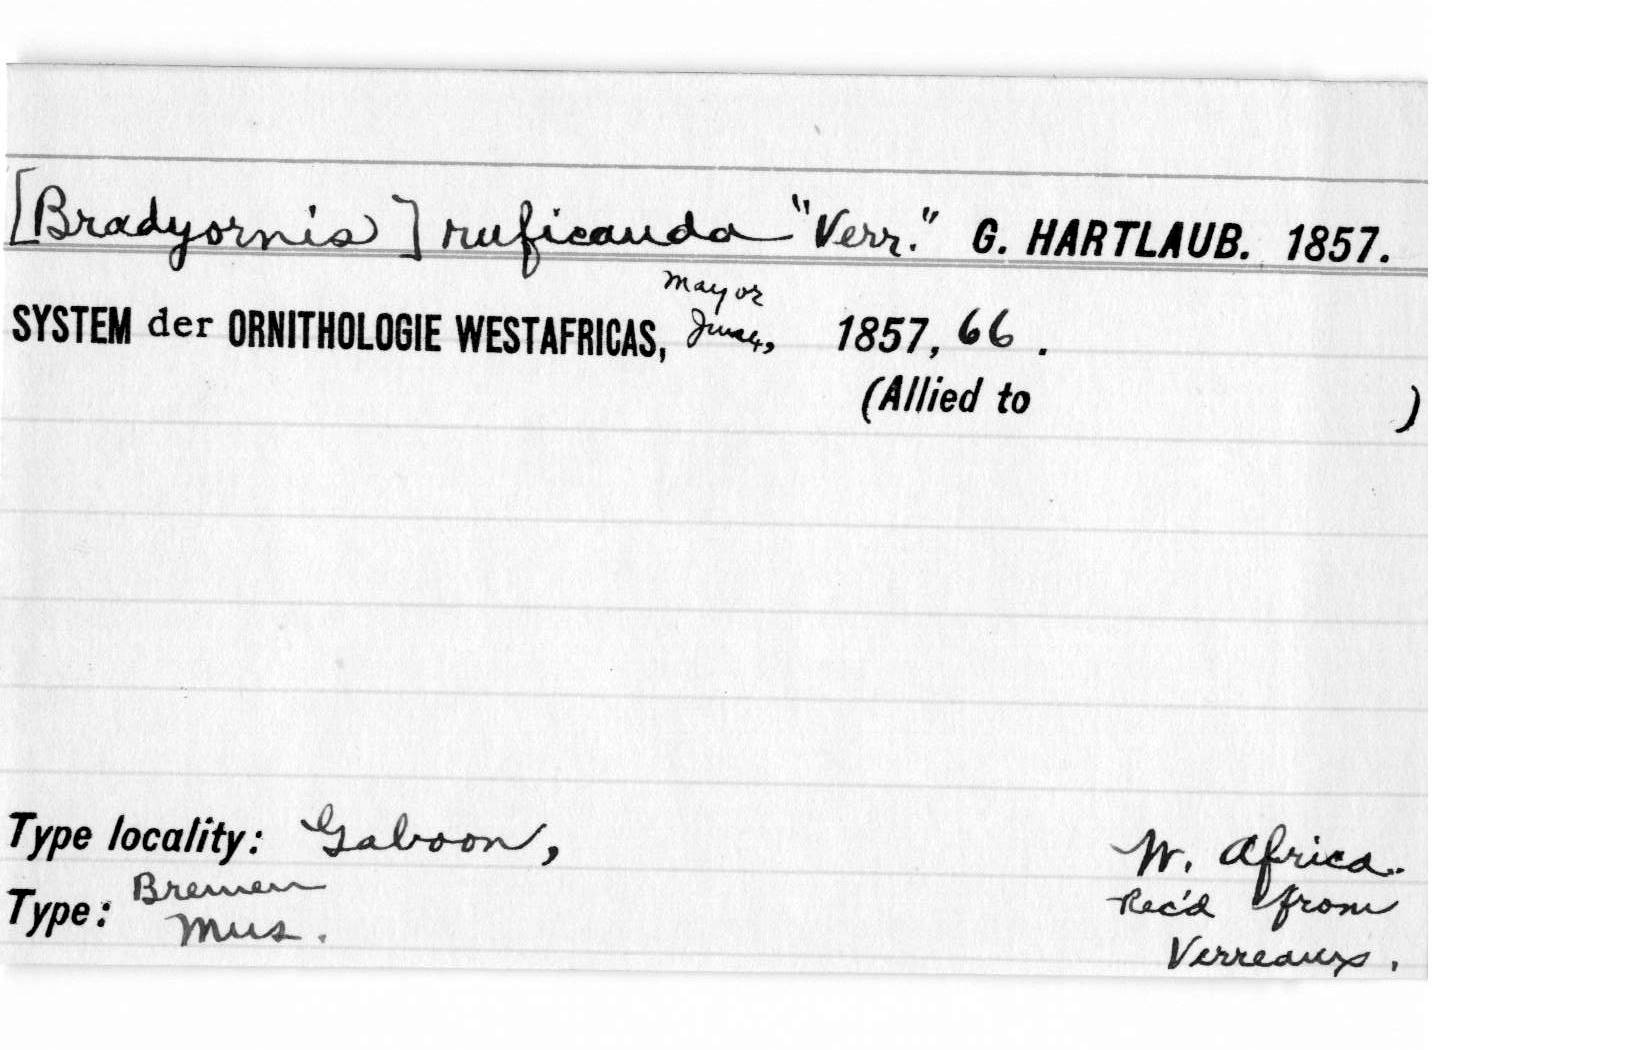 [Bradyornis] ruficauda "Verr." G. HARTLAUB. 1857.
May or
SYSTEM der ORNITHOLOGIE WESTAFRICAS, June, 1857, 66.
(Allied to )
Type locality: Gaboon, W. Africa.
Type: Bremen Rec'd from
Mus. Verreaux.